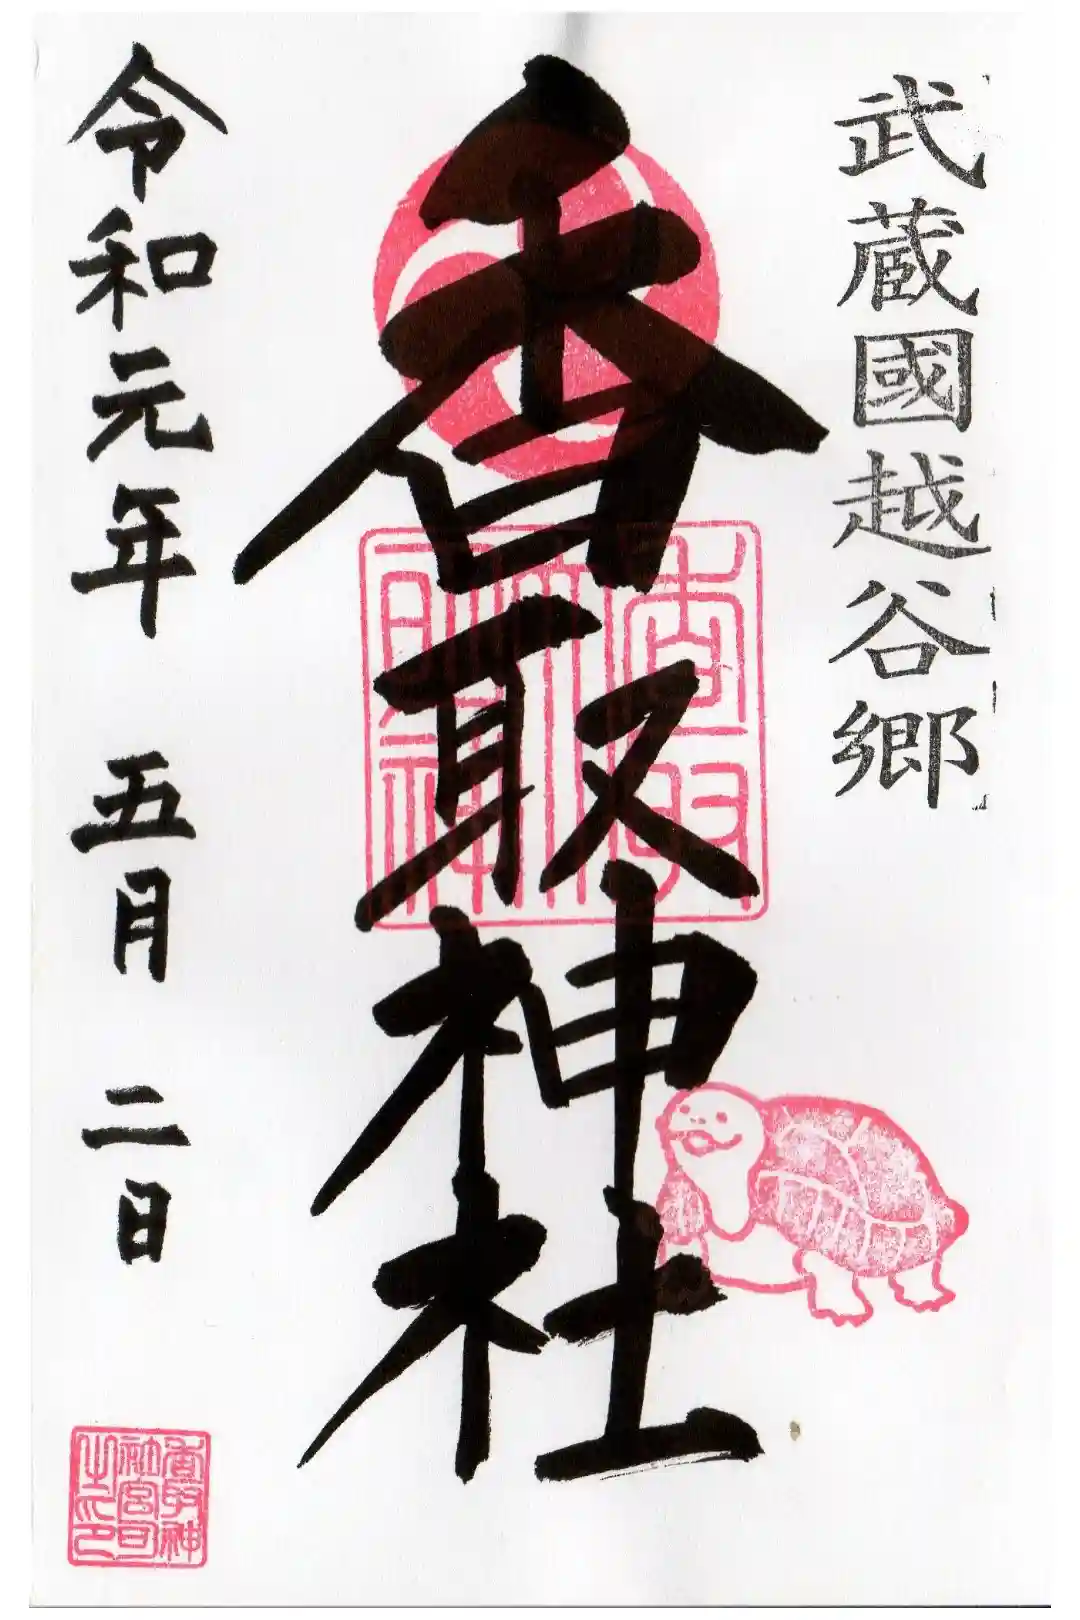 武蔵國越谷郷
香取神社
令和元年 五月 二日
香取神
社宮司
之印